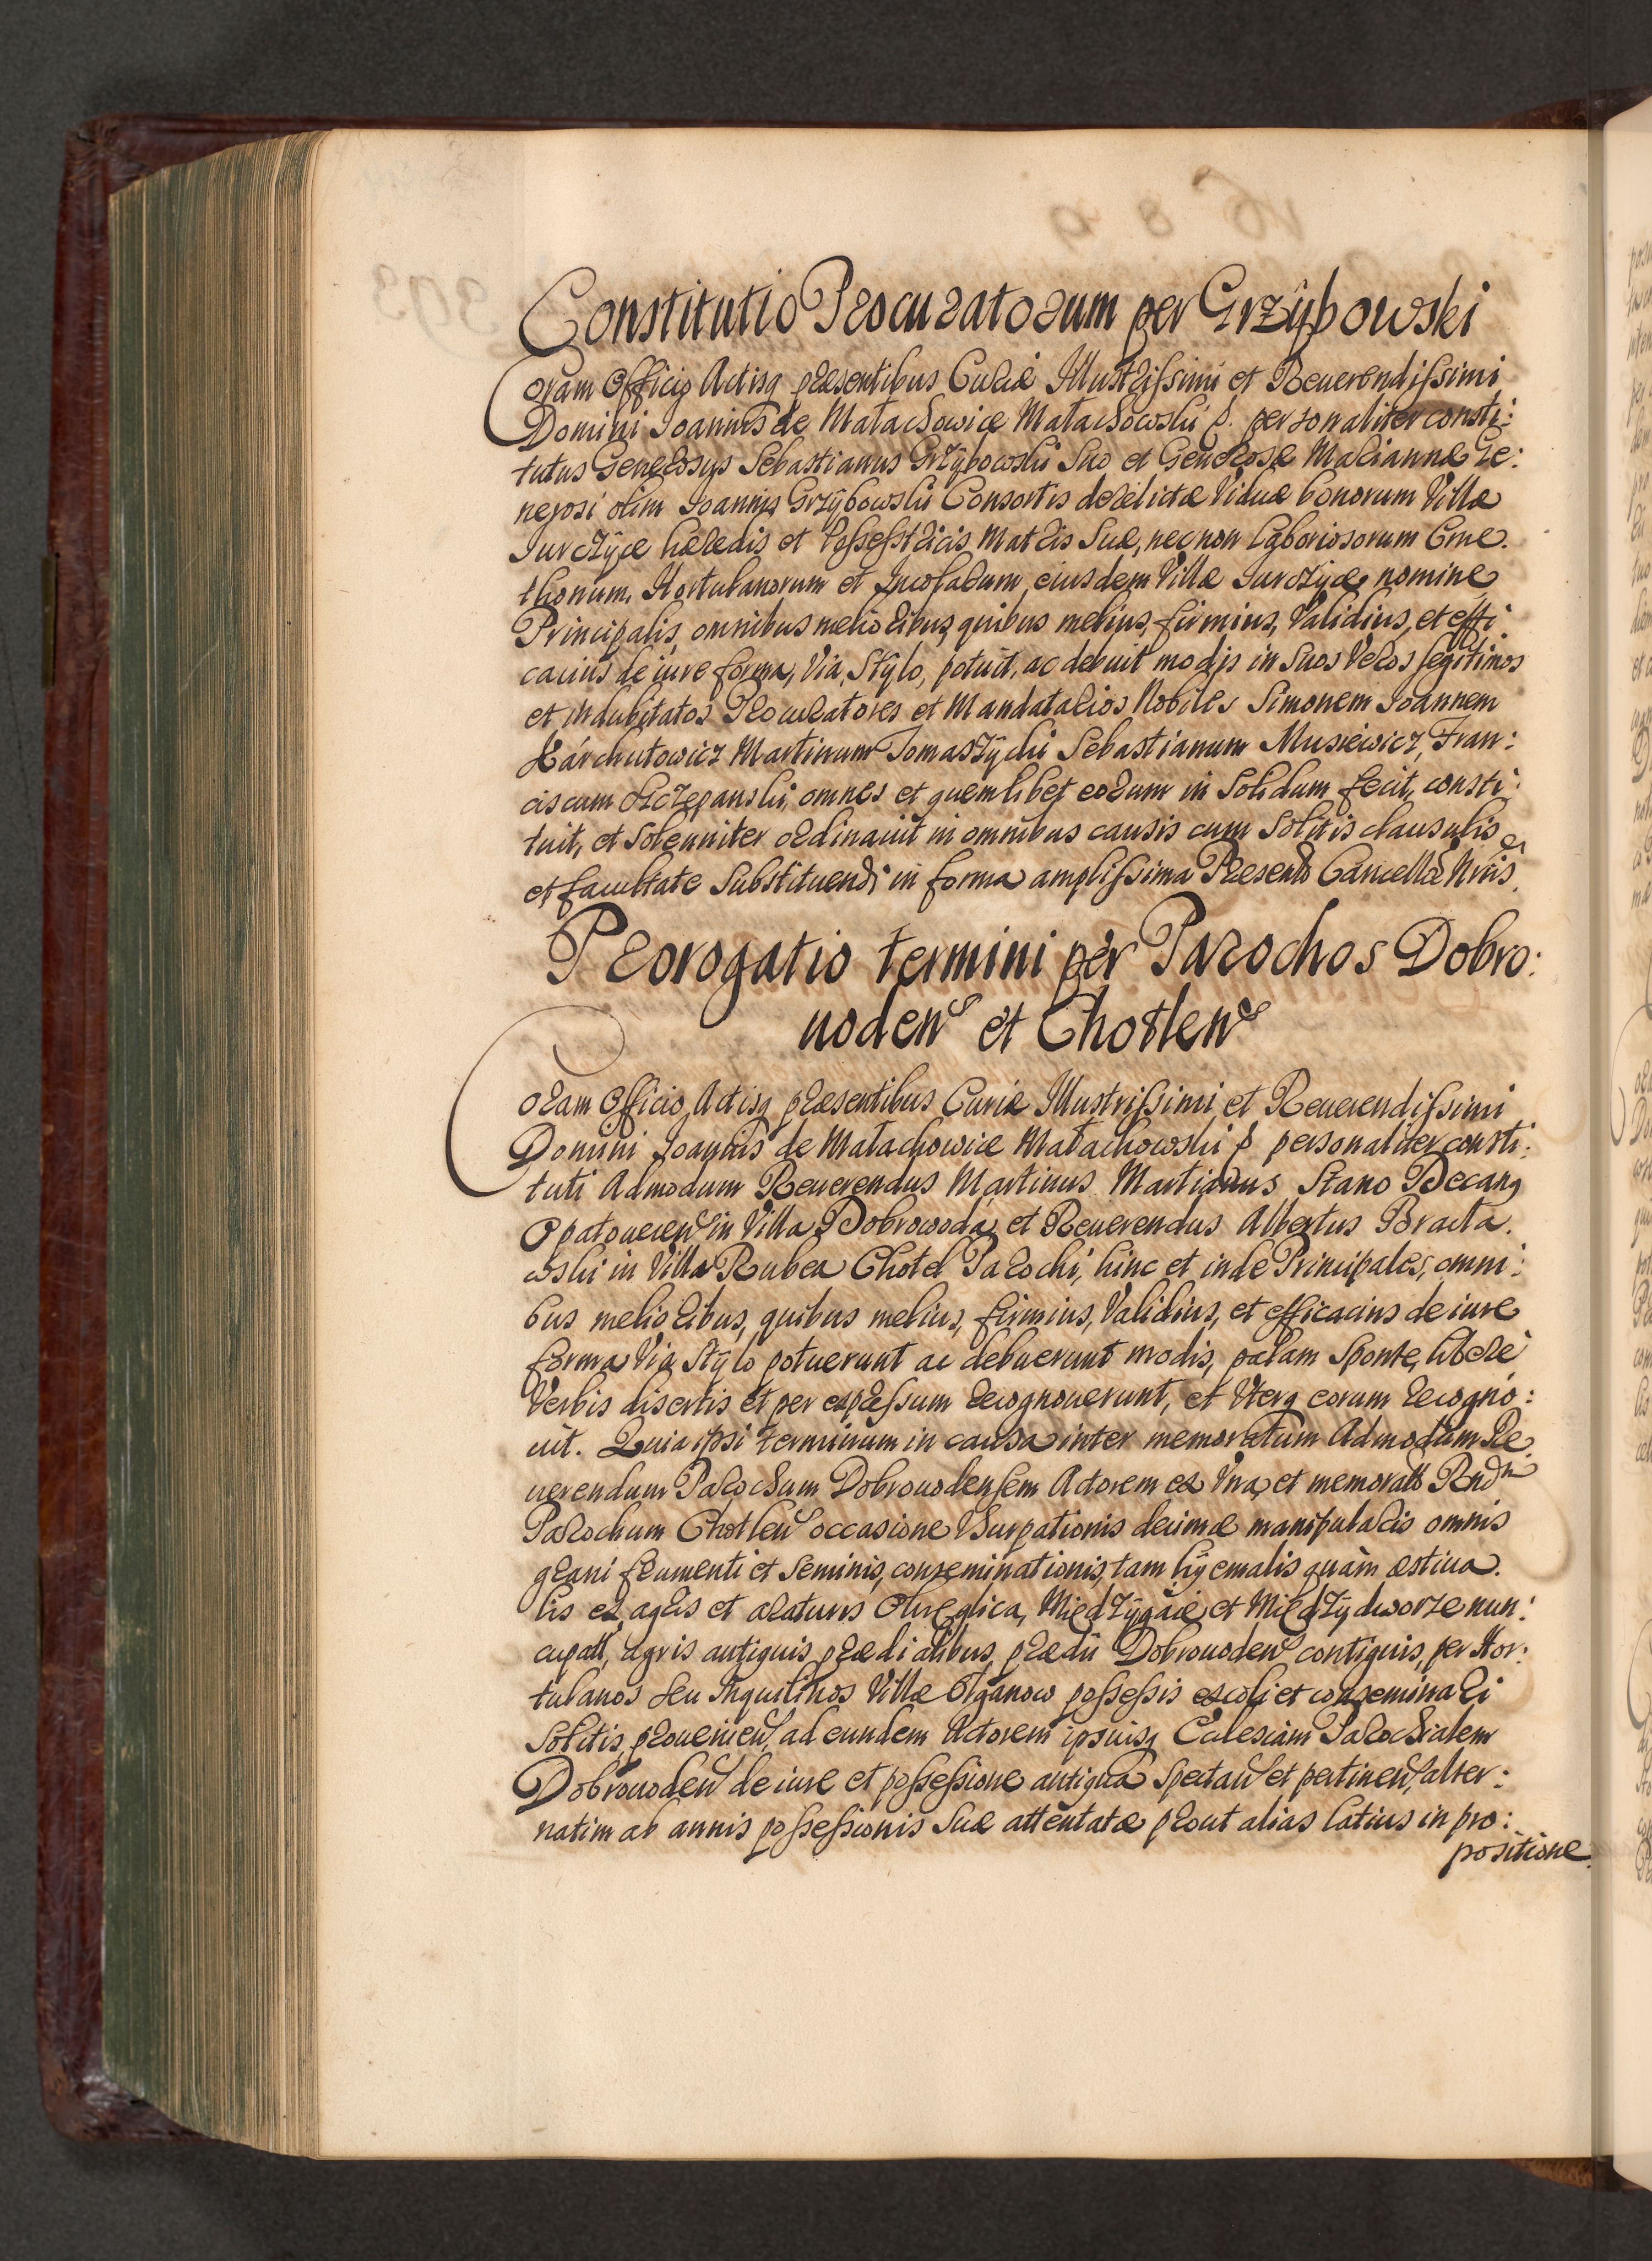 Constitutio Procuratorum per Grzÿbowski
Coram Officio Actisq praesentibus Curiae Illustrissimi et Reuerendissimi
Domini Joannis de Małachowice Małachowski personaliter consti:
tutus Generosus Sebastianus Grzÿbowski Suo et Generosae Mariannae Ge:
nerosi olim Joannis Grzÿbowski Consortis derelictae Viduae bonorum Villae
Jurczÿce haeredis et Possestricis Matris Suae, necnon laboriosorum Cme.
thonum, Hortulanorum et Incolarum eiusdem Villae Jurczÿce nomine
Principalis, omnibus melioribus quibus melius, firmius, Validius, et effi
cacius de iure forma, Via, Stÿlo, potuit, ac debuit modis in Suos Veros legitimos
et indubitatos Procuratores et Mandatarios Nobiles Simonem Joannem
Harchutowicz Martinum Tomaszÿcki Sebastianum Musiewicz, Fran:
ciscum Sczepanski, omnes et quemlibet eorum in Solidum fecit, consti:
tuit, et Solenniter ordinauit in omnibus causis cum Solitis clausulis
et facultate Substituendi in forma amplissima Praesente Cancellae Nris
Prorogatio termini per Parochos Dobro:
uoden et Chotlen
Coram Officio, Actisq praesentibus Curiae Illustrissimi et Reuerendissimi
Domini Joannis de Małachowice Małachowski personaliter consti:
tuti Admodum Reuerendus Martinus Martianus Stano Decanq
Opatouecen in Villa Dobrowoda, et Reuerendus Albertus Bracła.
wski in Villa Rubea Chotel Parochi, hinc et inde Principales, omni:
bus melioribus, quibus melius, firmius, Validius, et efficacius de iure
forma Via Stÿlo potuerunt ac debuerunt modis, palam Sponte, libere
Verbis disertis et per expressum recognouerunt, et Vterq eorum recogno:
uit. Quia ipsi terminum in causa inter memoratum Admodum Re:
uerendum Parochum Dobrouodensem Actorem ex Vna, et memorat Rndm
Parochum Chotlen occasione Vsurpationis decimae manipularis omnis
grani frumenti et Seminis, conseminationis, tam hÿemalis quàm aestiua.
lis ex agris et araturis Okręglica, Międzÿgaie et Międzÿdworze nun:
cupatt, agris antiquis praedialibus, praedii Dobrouoden contiguis, per Hor:
tulanos Seu Inquilinos Villae Olganow possessis excoli et conseminari
Solitis, prouenien, ad eundem Actorem ipsiusq Ecclesiam Parochialem
Dobrouoden de iure et possessione antiqua Spectan et pertinen, alter:
natim ab annis possessionis Suae attentatae prout alias latius in pro:
positione